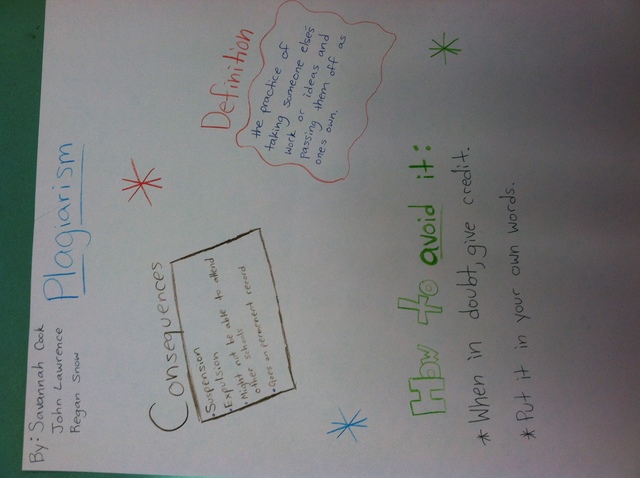 By: Savannah Cook
John Lawrence
Regan Snow
Plagiarism
Consequences
• Suspension
• Expulsion
• Might not be able to attend
other schools
• Goes on permenent record
Definition
the practice of
taking someone elses
work or ideas and
passing them off as
ones own.
How to avoid it:
* When in doubt, give credit.
* Put it in your own words.